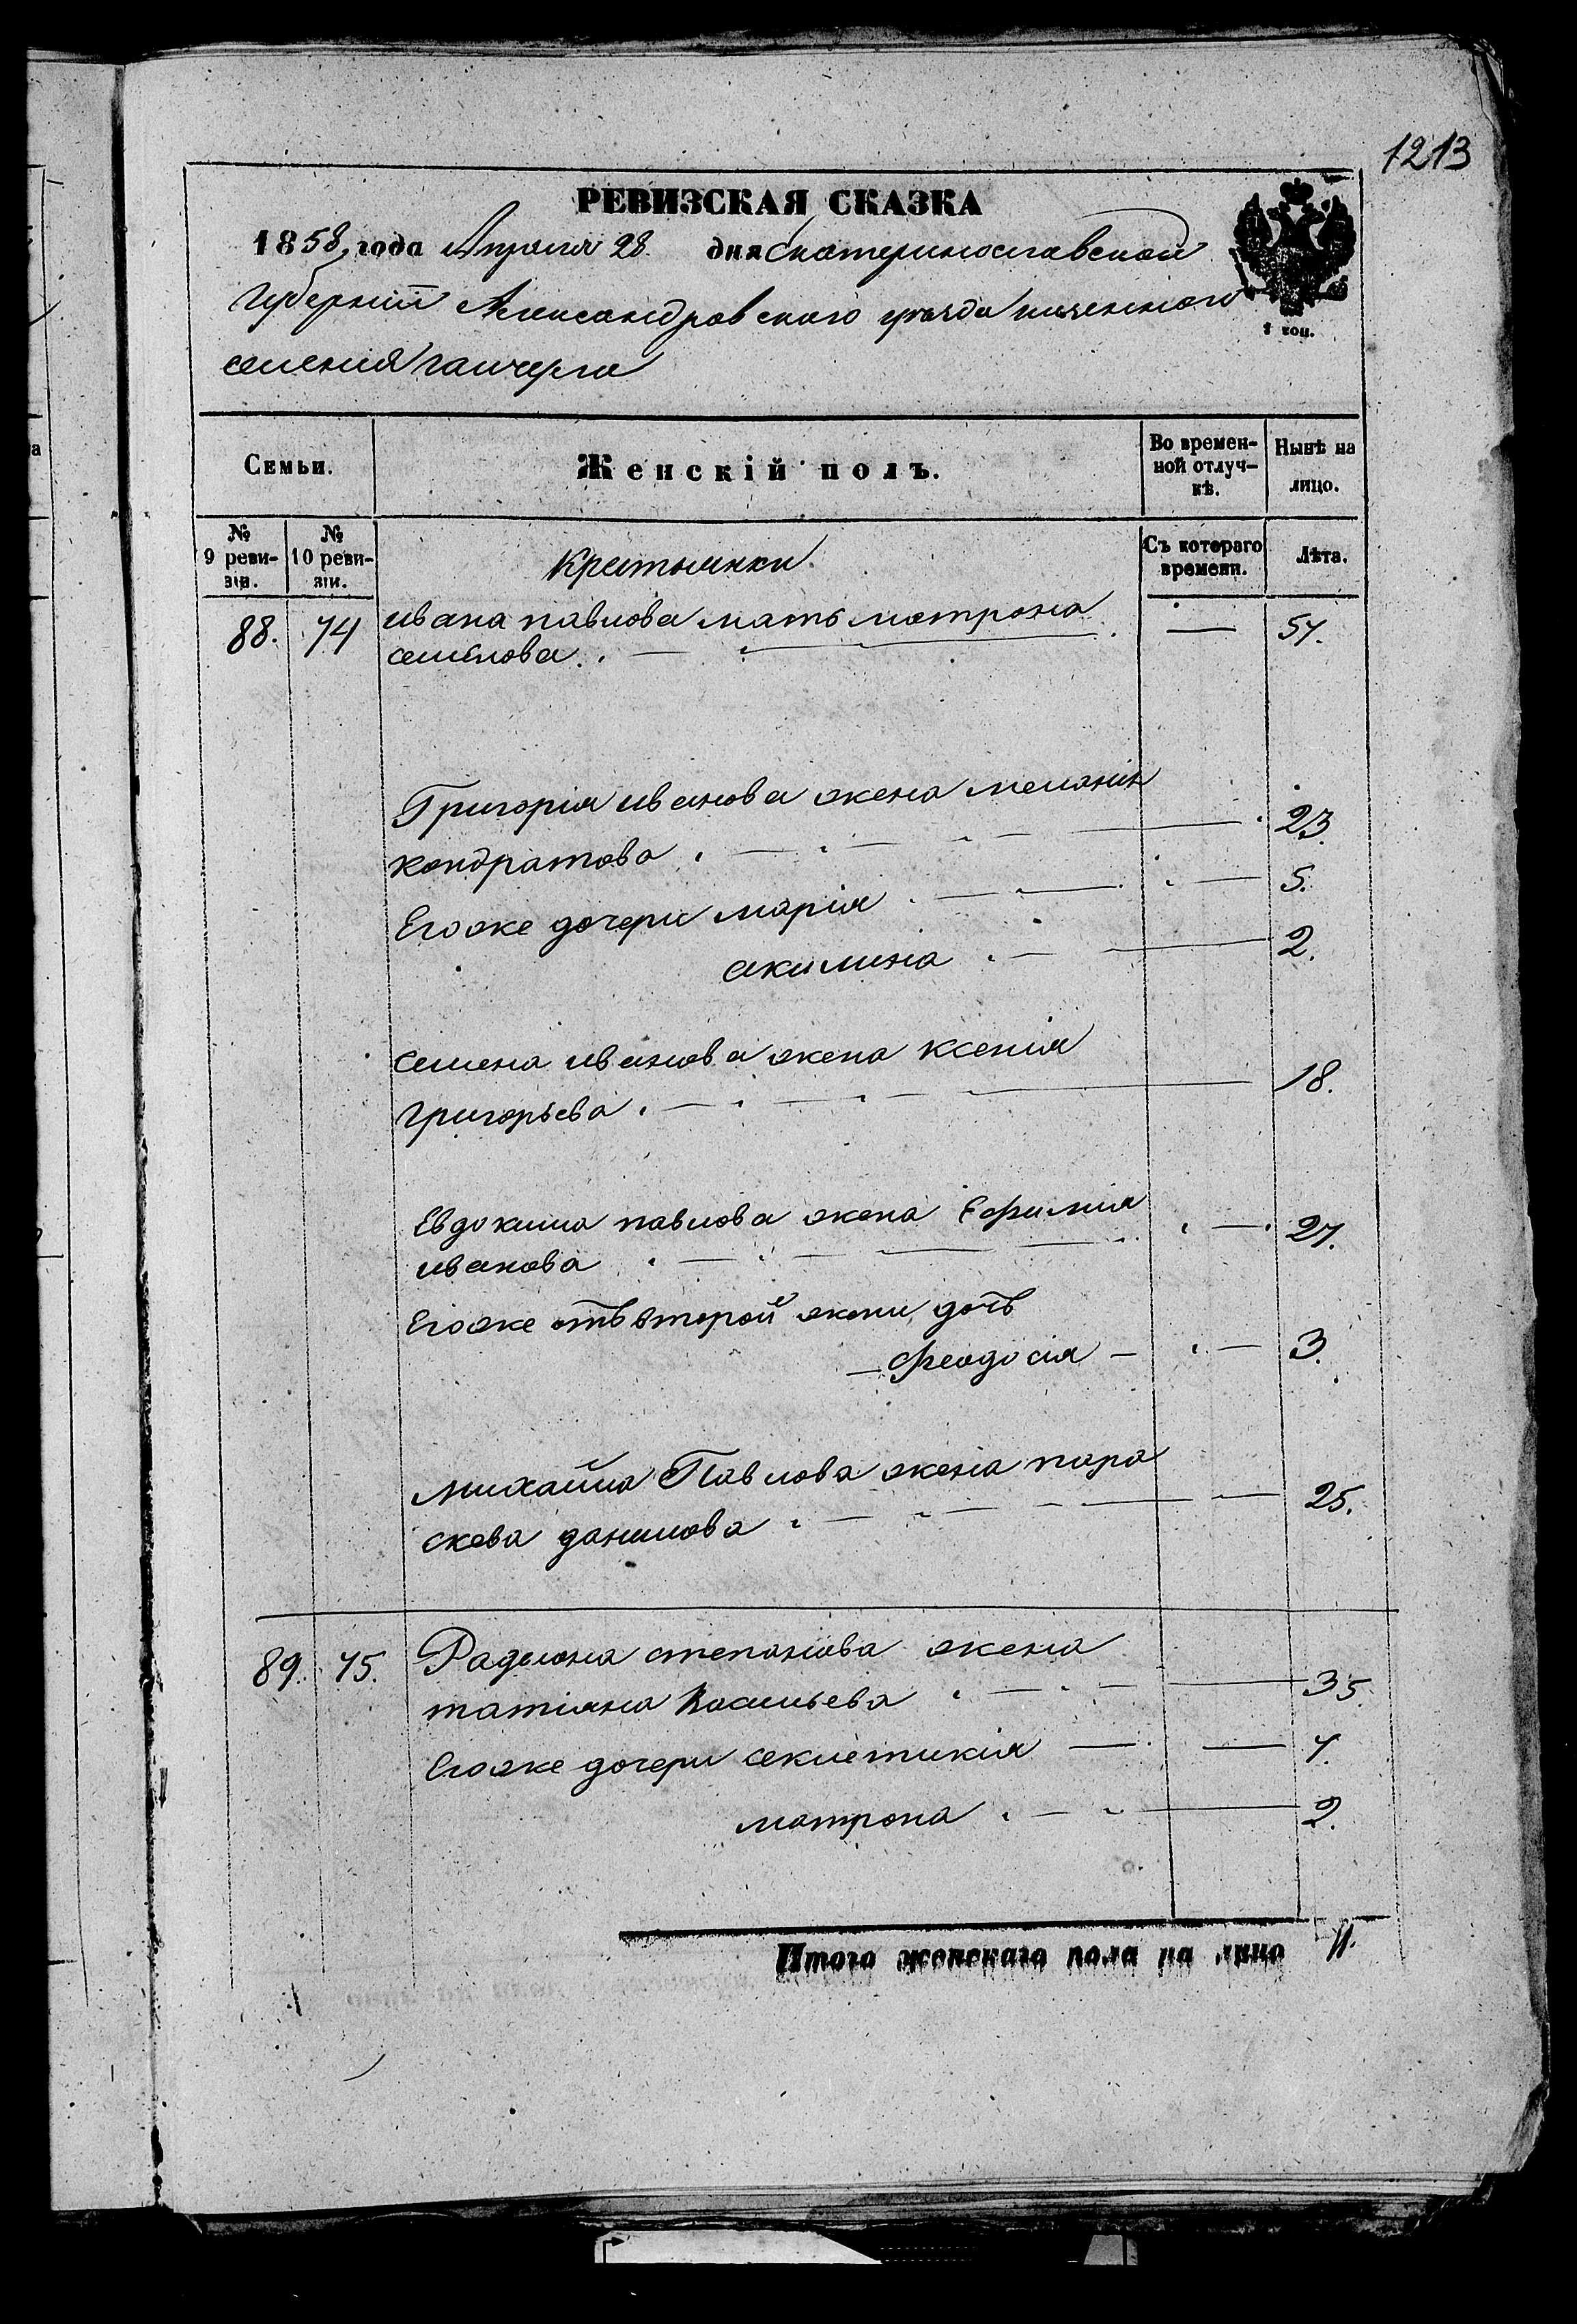 1213
РЕВИЗСКАЯ СКАЗКА
1858 года Апреля 28 дня Екатеринославской
Губерніи Александровского уезда казенного
селения гайчера
Семьи.
Женскій полъ.
Во времен-
ной отлуч-
кѣ.
Нынѣ на
лицо.
№
9 реви-
зіи.
№
10 реви-
зіи.
Съ котораго
времени.
Лѣта.
1 коп.
крестьянки
88. 74 ивана павлова мать матрона — 57.
семенова
Григорія иванова жена меланія
кондратова 23.
Егоже дочери марія 5.
акилина 2.
семена иванова жена ксенія
григорьева 18.
Евдокима павлова жена Ефимія 27.
иванова
Егоже отъ второй жени дочь
феодосія — 3.
михайла Павлова жена пара
скева данилова 25.
89. 75. Радиона степанова жена
татіяна Васильева 35.
Егоже дочери секлетикія — 7.
матрона 2.
Итого женскаго пола на лицо 11.